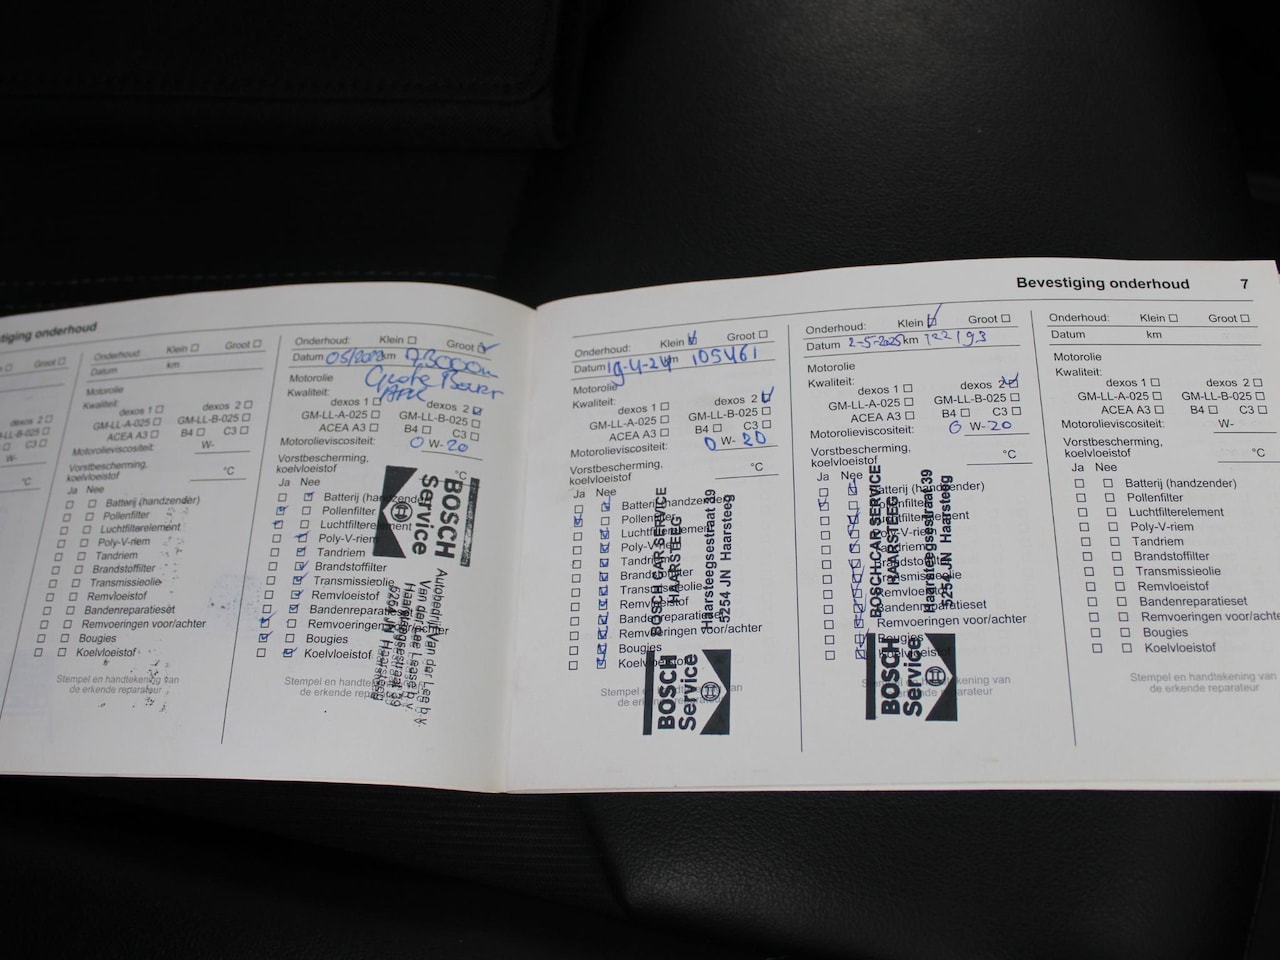 Onderhoud: Klein Groot
Datum km
Motorolie
Kwaliteit:
dexos 1 dexos 2
GM-LL-A-025 GM-LL-B-025
ACEA A3 B4 C3
Motorolieviscositeit: W-
Vorstbescherming,
koelvloeistof °C
Ja Nee
Batterij (handzender)
Pollenfilter
Luchtfilterelement
Poly-V-riem
Tandriem
Brandstoffilter
Transmissieolie
Remvloeistof
Bandenreparatieset
Remvoeringen voor/achter
Bougies
Koelvloeistof
Stempel en handtekening van
de erkende reparateur
Onderhoud: Klein Groot
Datum km
Motorolie
Grote Beurt
Kwaliteit:
dexos 1 dexos 2
GM-LL-A-025 GM-LL-B-025
ACEA A3 B4 C3
Motorolieviscositeit: 0 W-20
Vorstbescherming,
koelvloeistof °C
Ja Nee
Batterij (handzender)
Pollenfilter
Luchtfilterelement
Poly-V-riem
Tandriem
Brandstoffilter
Transmissieolie
Remvloeistof
Bandenreparatieset
Remvoeringen voor/achter
Bougies
Koelvloeistof
Stempel en handtekening van
de erkende reparateur
BOSCH
Service
Autobedrijf Van der Lee b.v.
Van der Lee Lease b.v.
Haarsteegsestraat 39
5254 JN Haarsteeg
Bevestiging onderhoud 7
Onderhoud: Klein Groot
Datum 19-4-24 km 105461
Motorolie
Kwaliteit:
dexos 1 dexos 2
GM-LL-A-025 GM-LL-B-025
ACEA A3 B4 C3
Motorolieviscositeit: 0 W- 20
Vorstbescherming,
koelvloeistof °C
Ja Nee
Batterij (handzender)
Pollenfilter
Luchtfilterelement
Poly-V-riem
Tandriem
Brandstoffilter
Transmissieolie
Remvloeistof
Bandenreparatieset
Remvoeringen voor/achter
Bougies
Koelvloeistof
Stempel en handtekening van
de erkende reparateur
BOSCH CAR SERVICE
HAARSTEEG
Haarsteegsestraat 39
5254 JN Haarsteeg
BOSCH
Service
Onderhoud: Klein Groot
Datum 2-5-2025 km 122193
Motorolie
Kwaliteit:
dexos 1 dexos 2
GM-LL-A-025 GM-LL-B-025
ACEA A3 B4 C3
Motorolieviscositeit: 0 W-20
Vorstbescherming,
koelvloeistof °C
Ja Nee
Batterij (handzender)
Pollenfilter
Luchtfilterelement
Poly-V-riem
Tandriem
Brandstoffilter
Transmissieolie
Remvloeistof
Bandenreparatieset
Remvoeringen voor/achter
Bougies
Koelvloeistof
Stempel en handtekening van
de erkende reparateur
BOSCH CAR SERVICE
HAARSTEEG
Haarsteegsestraat 39
5254 JN Haarsteeg
BOSCH
Service
Onderhoud: Klein Groot
Datum km
Motorolie
Kwaliteit:
dexos 1 dexos 2
GM-LL-A-025 GM-LL-B-025
ACEA A3 B4 C3
Motorolieviscositeit: W-
Vorstbescherming,
koelvloeistof °C
Ja Nee
Batterij (handzender)
Pollenfilter
Luchtfilterelement
Poly-V-riem
Tandriem
Brandstoffilter
Transmissieolie
Remvloeistof
Bandenreparatieset
Remvoeringen voor/achter
Bougies
Koelvloeistof
Stempel en handtekening van
de erkende reparateur